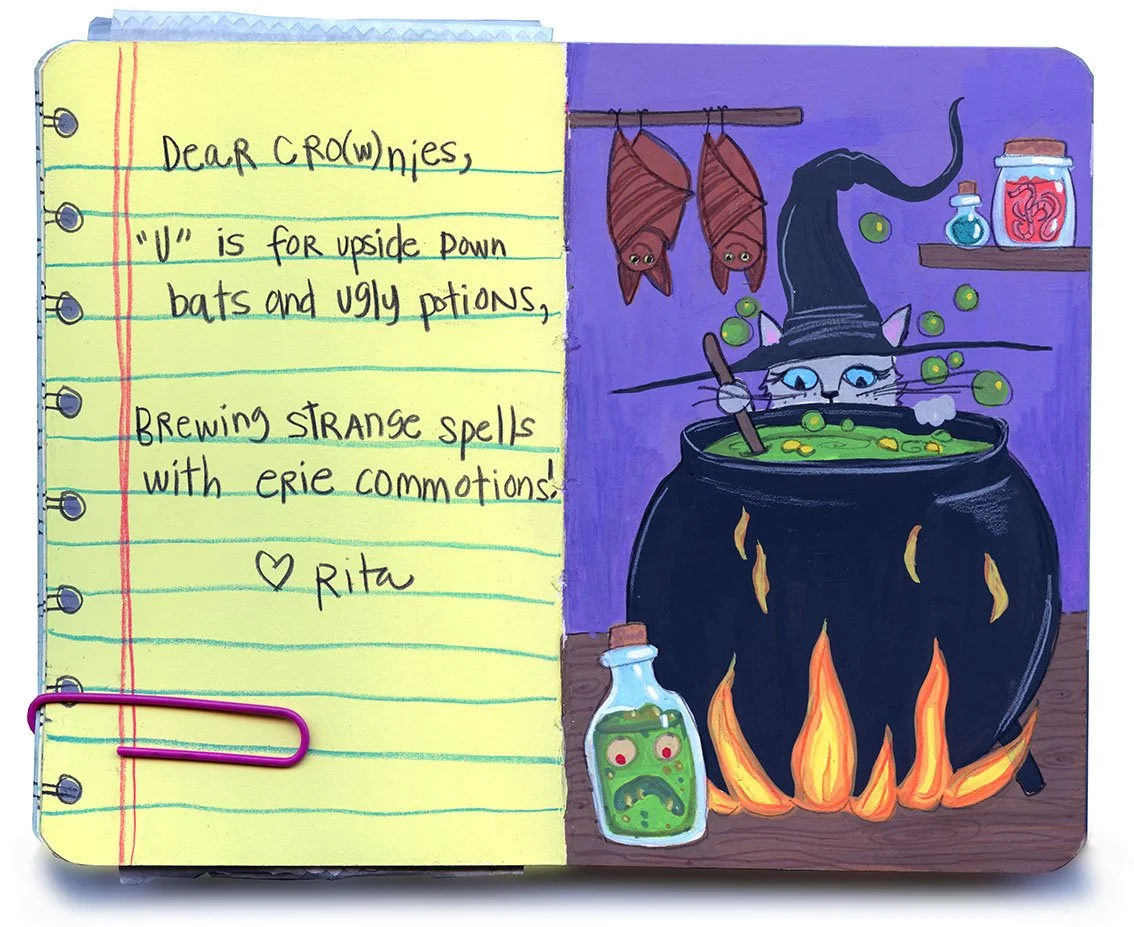 Dear Cro(w)nies,
"U" is for upside down
bats and ugly potions,
Brewing strange spells
with erie commotions!
♡ Rita